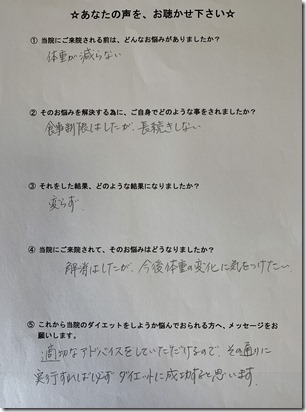 ☆あなたの声を、お聴かせ下さい☆
① 当院にご来院される前は、どんなお悩みがありましたか？
体重が減らない
② そのお悩みを解決する為に、ご自身でどのような事をされましたか？
食事制限はしたが、長続きしない
③ それをした結果、どのような結果になりましたか？
変らず
④ 当院にご来院されて、そのお悩みはどうなりましたか？
解消はしたが、今後体重の変化に気をつけたい
⑤ これから当院のダイエットをしようか悩んでおられる方へ、メッセージをお
願いします。
適切なアドバイスをしていただけるので、その通りに
実行すれば必ずダイエットに成功すると思います。